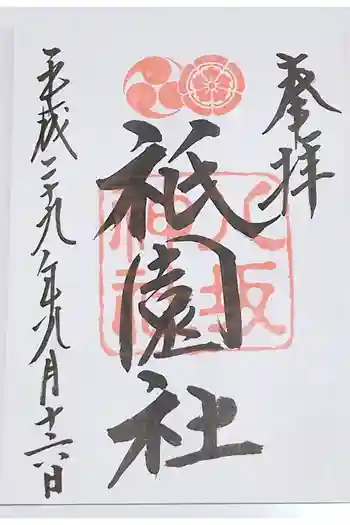 奉拝
祇園社
八坂神社
平成二十九年九月十六日